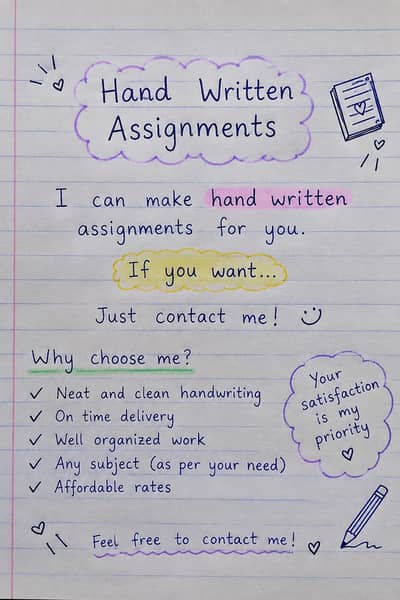 Hand Written
Assignments
I can make hand written
assignments for you.
If you want...
Just contact me!
Why choose me?
✓ Neat and clean handwriting
✓ On time delivery
✓ Well organized work
✓ Any subject (as per your need)
✓ Affordable rates
Your
satisfaction
is my
priority
Feel free to contact me!